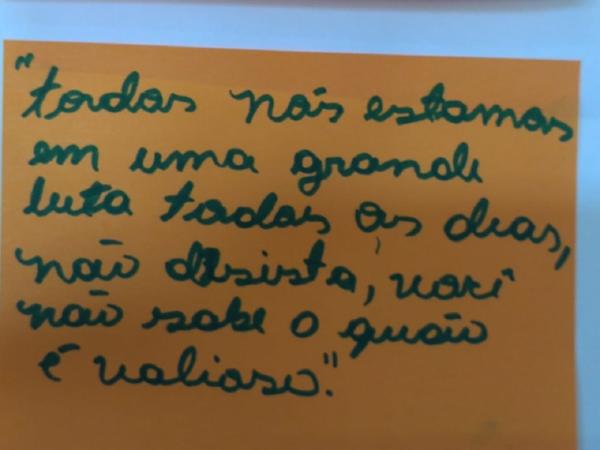 "todos nós estamos
em uma grande
luta todos os dias,
não desista, você
não sabe o quão
é valioso."